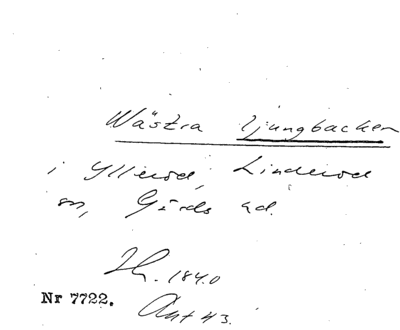 Wästra ljungbacken
i Yllerod, Linderod
sn, Gärds hd.
Lh. 1840
Nr 7722.
Akt 43.